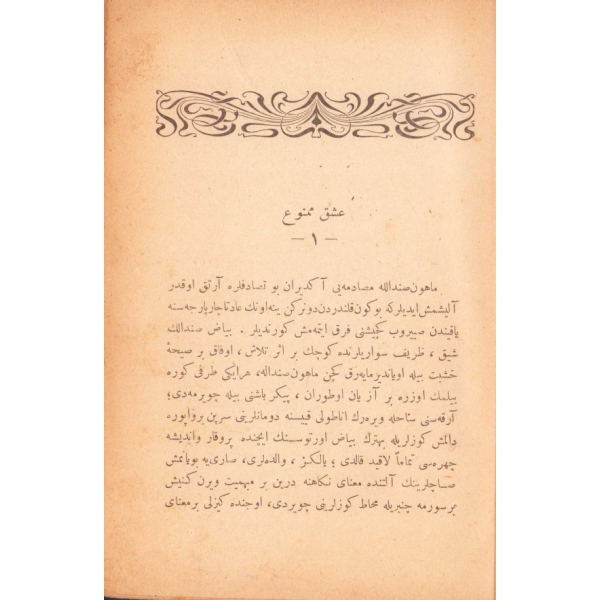 عشق ممنوع
— ١ —
ماهون صندالله مصادمه‌یی آكدیران بو تصادفلره آرتق اوقدر
آلیشمش ایدیلركه بوكون قلندردن دونركن ینه اونك عادتا چارپارجه‌سنه
یاقیندن صیروب كچیشنی فرق ایتمه‌مش كورندیلر . بیاض صندالك
شیق ، ظریف سواریلرنده كوچك بر اثر تلاش ، اوفاق بر صیحهٔ
خشیت بیله اویاندیرمایه‌رق كچن ماهون صنداله، هرایكی طرفی كوره
بیلمك اوزره بر آز یان اوطوران ، پیكر باشنی بیله چویرمه‌دی؛
آرقه‌سنی ساحله ویره‌رك اناطولی قییسنه دومانلرینی سرپن بر واپوره
دالمش كوزلریله بهترك بیاض اورتوسنك ایچنده پروقار واندیشه
چهره‌سی تماماً لاقید قالدی ؛ یالكز ، والده‌لری، صاری‌یه بویانمش
صاچلرینك آلتنده معنای نكاهنه درین بر مبهمیت ویرن كنیش
برسورمه چنبریله محاط كوزلرینی چویردی، اوجنده كیزلی برمعنای